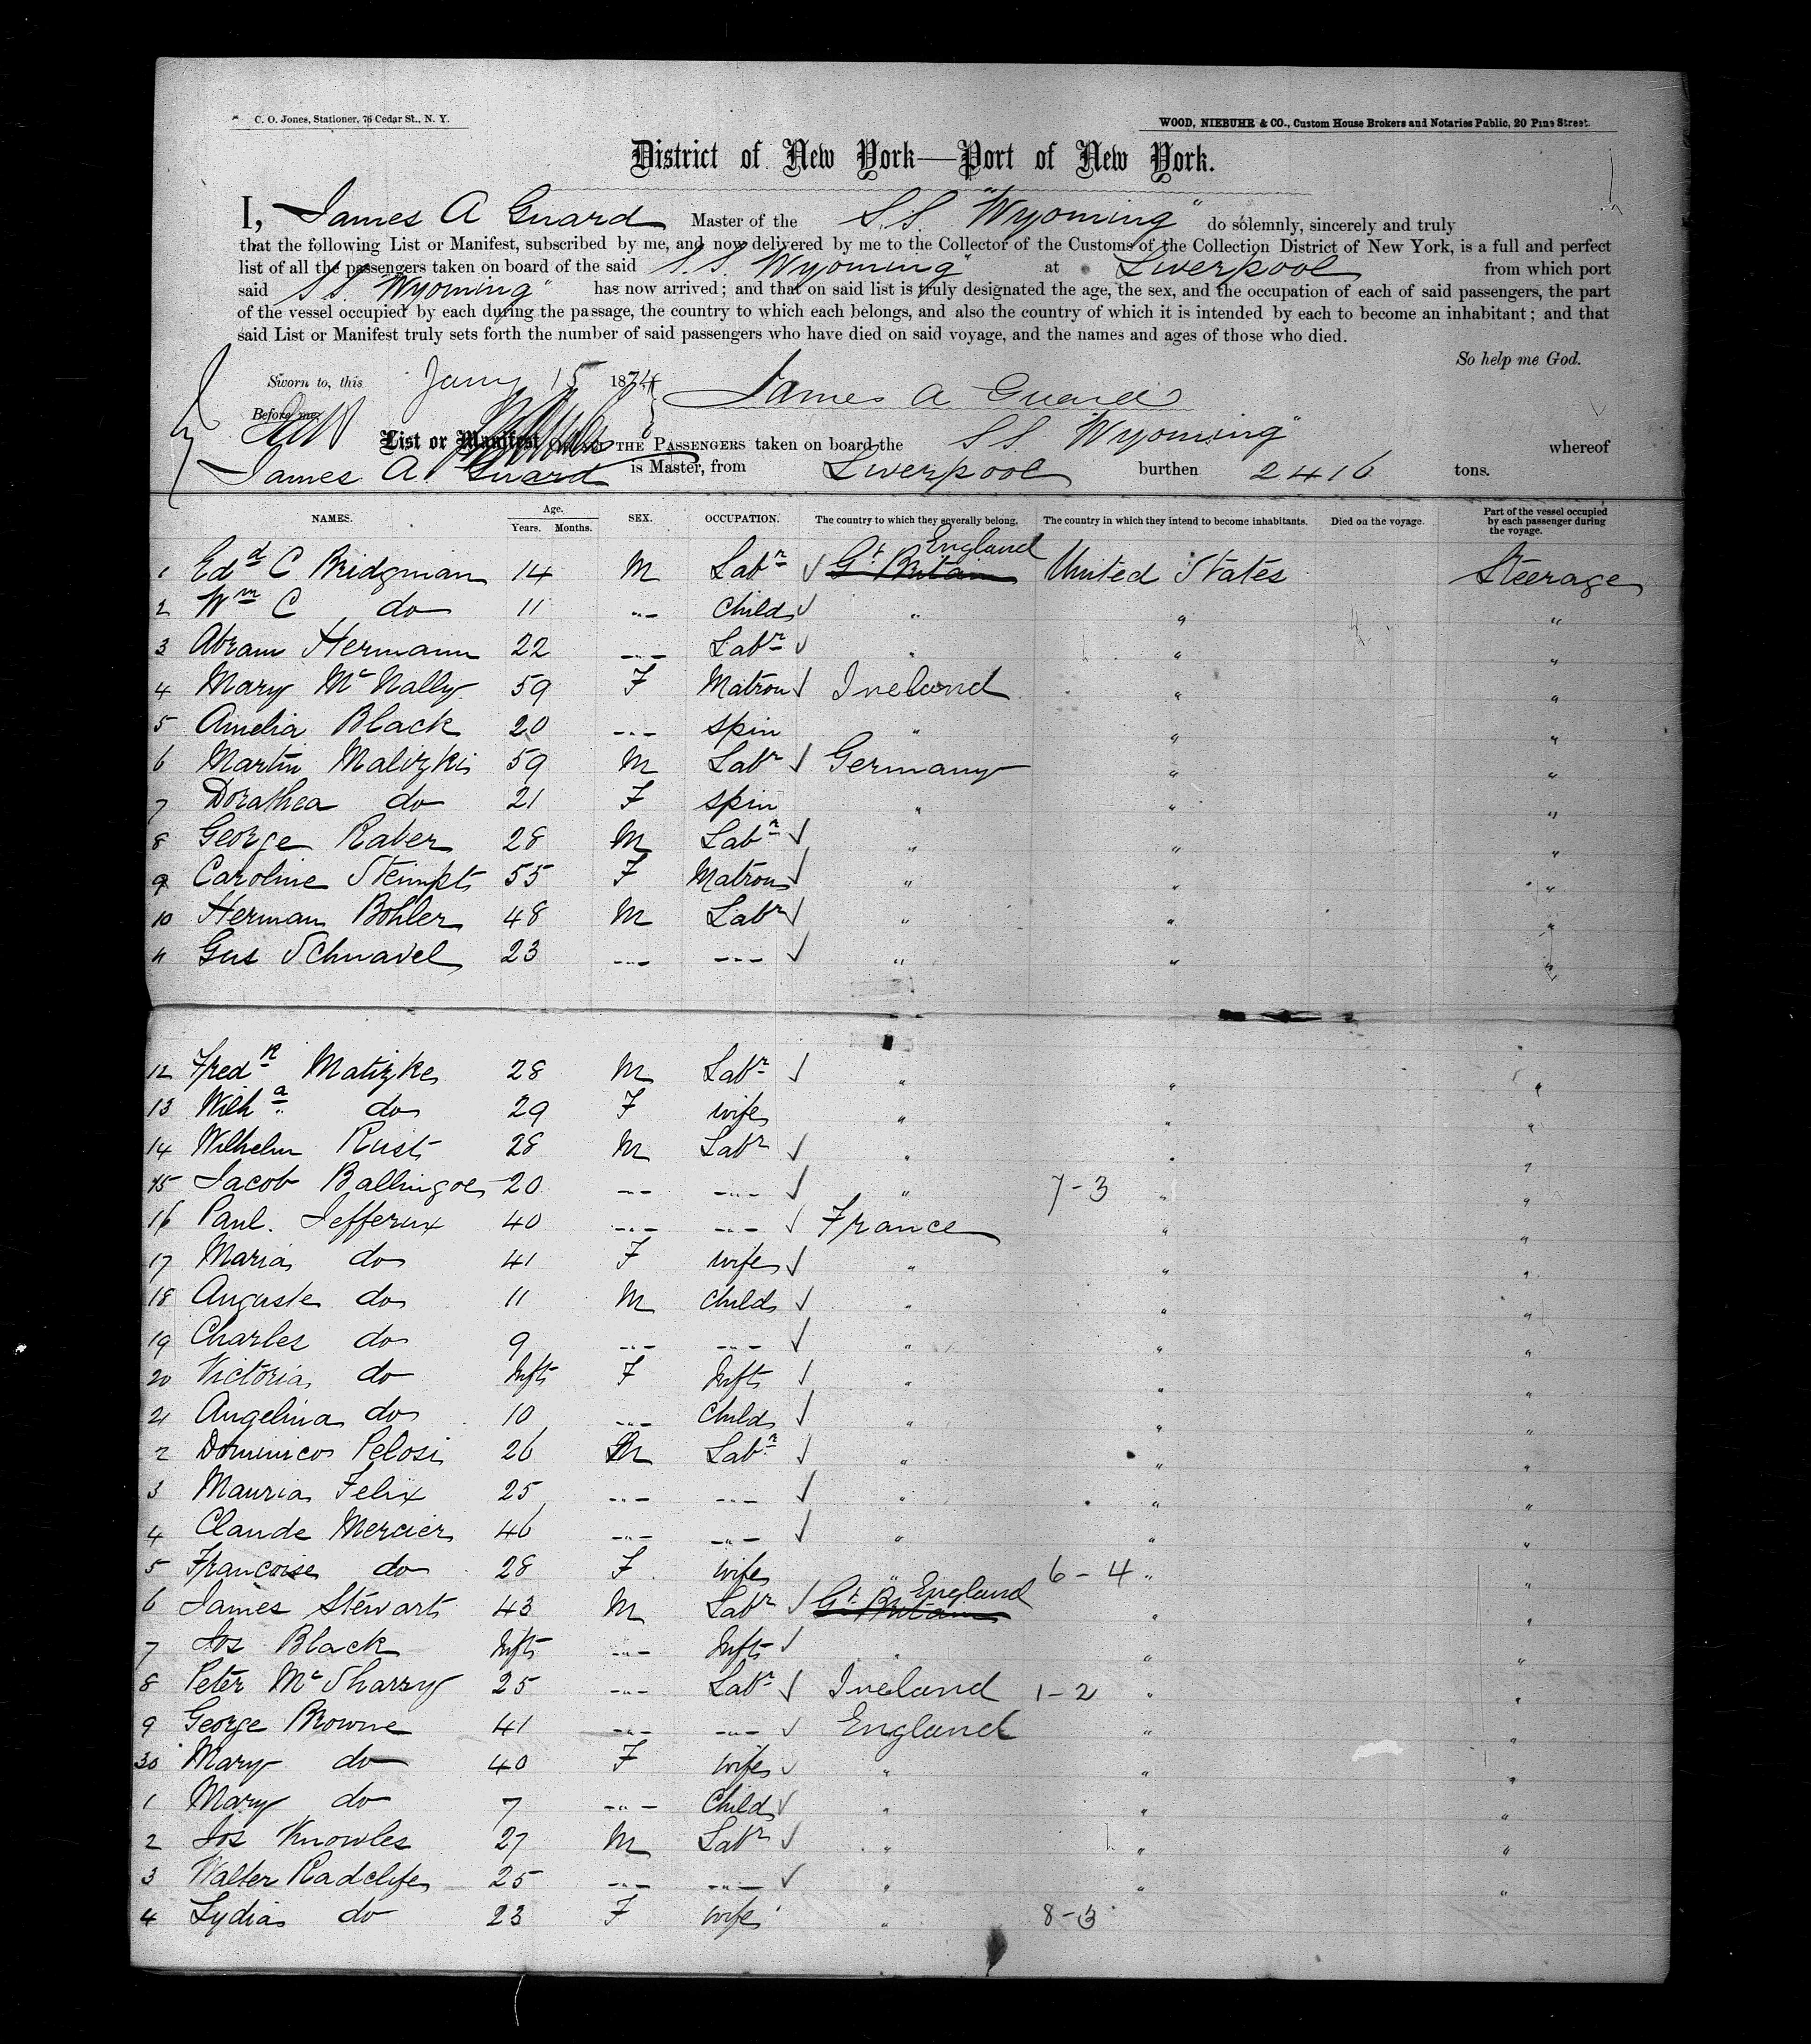 C. O. Jones, Stationer, 76 Cedar St., N. Y.
WOOD, NIEBUHR & CO., Custom House Brokers and Notaries Public, 20 Pine Street.
District of New York—Port of New York.
I, James A Guard Master of the S.S. "Wyoming" do solemnly, sincerely and truly
that the following List or Manifest, subscribed by me, and now delivered by me to the Collector of the Customs of the Collection District of New York, is a full and perfect
list of all the passengers taken on board of the said S.S. Wyoming" at Liverpool from which port
said S S. "Wyoming" has now arrived; and that on said list is truly designated the age, the sex, and the occupation of each of said passengers, the part
of the vessel occupied by each during the passage, the country to which each belongs, and also the country of which it is intended by each to become an inhabitant; and that
said List or Manifest truly sets forth the number of said passengers who have died on said voyage, and the names and ages of those who died.
So help me God.
Sworn to, this Jany 15 1874 James A Guard
Before me
List or Manifest OF ALL THE PASSENGERS taken on board the S S "Wyoming" whereof
James A. Guard is Master, from Liverpool burthen 2416 tons.
NAMES. Age. Years. Months. SEX. OCCUPATION. The country to which they severally belong. The country in which they intend to become inhabitants. Died on the voyage. Part of the vessel occupied by each passenger during the voyage.
1 Edd C Bridgman 14 M Labr ✓ Gt Britain England United States Steerage
2 Wm C do 11 " Child ✓ " " "
3 Abram Hermann 22 " Labr ✓ " " "
4 Mary McNally 59 F Matron ✓ Ireland " "
5 Amelia Black 20 " spin " " "
6 Martin Malizki 59 M Labr ✓ Germany " "
7 Dorathea do 21 F spin " " "
8 George Raber 28 M Labr ✓ " " "
9 Caroline 55 F Matron ✓ " " "
10 Herman Bohler 48 M Labr ✓ " " "
11 Gus Schnavel 23 " " ✓ " " "
12 Fredk Matizke 28 M Labr ✓ " " "
13 Wilha do 29 F wife " " "
14 Wilhelm Rust 28 M Labr ✓ " " "
15 Jacob 20 " " ✓ " 7-3 " "
16 Paul. 40 " " ✓ France " "
17 Maria do 41 F wife ✓ " " "
18 Auguste do 11 M Child ✓ " " "
19 Charles do 9 " " ✓ " " "
20 Victoria do Inft F Inft ✓ " " "
21 Angelina do 10 " Child ✓ " " "
2 Dominico Pelosi 26 M Labr ✓ " " "
3 Mauria Felix 25 " " ✓ " " "
4 Claude Mercier 46 " " ✓ " " "
5 Francoise do 28 F wife " 6-4 " "
6 James Stewart 43 M Labr ✓ Gt Britain England " "
7 Jos Black Inft " Inft ✓ " " "
8 Peter McSharry 25 " Labr ✓ Ireland 1-2 " "
9 George Browne 41 " " ✓ England " "
30 Mary do 40 F wife ✓ " " "
1 Mary do 7 " Child ✓ " " "
2 Jos Knowles 27 M Labr ✓ " " "
3 Walter Radclyfe 25 " " ✓ " " "
4 Lydia do 23 F wife " 8-3